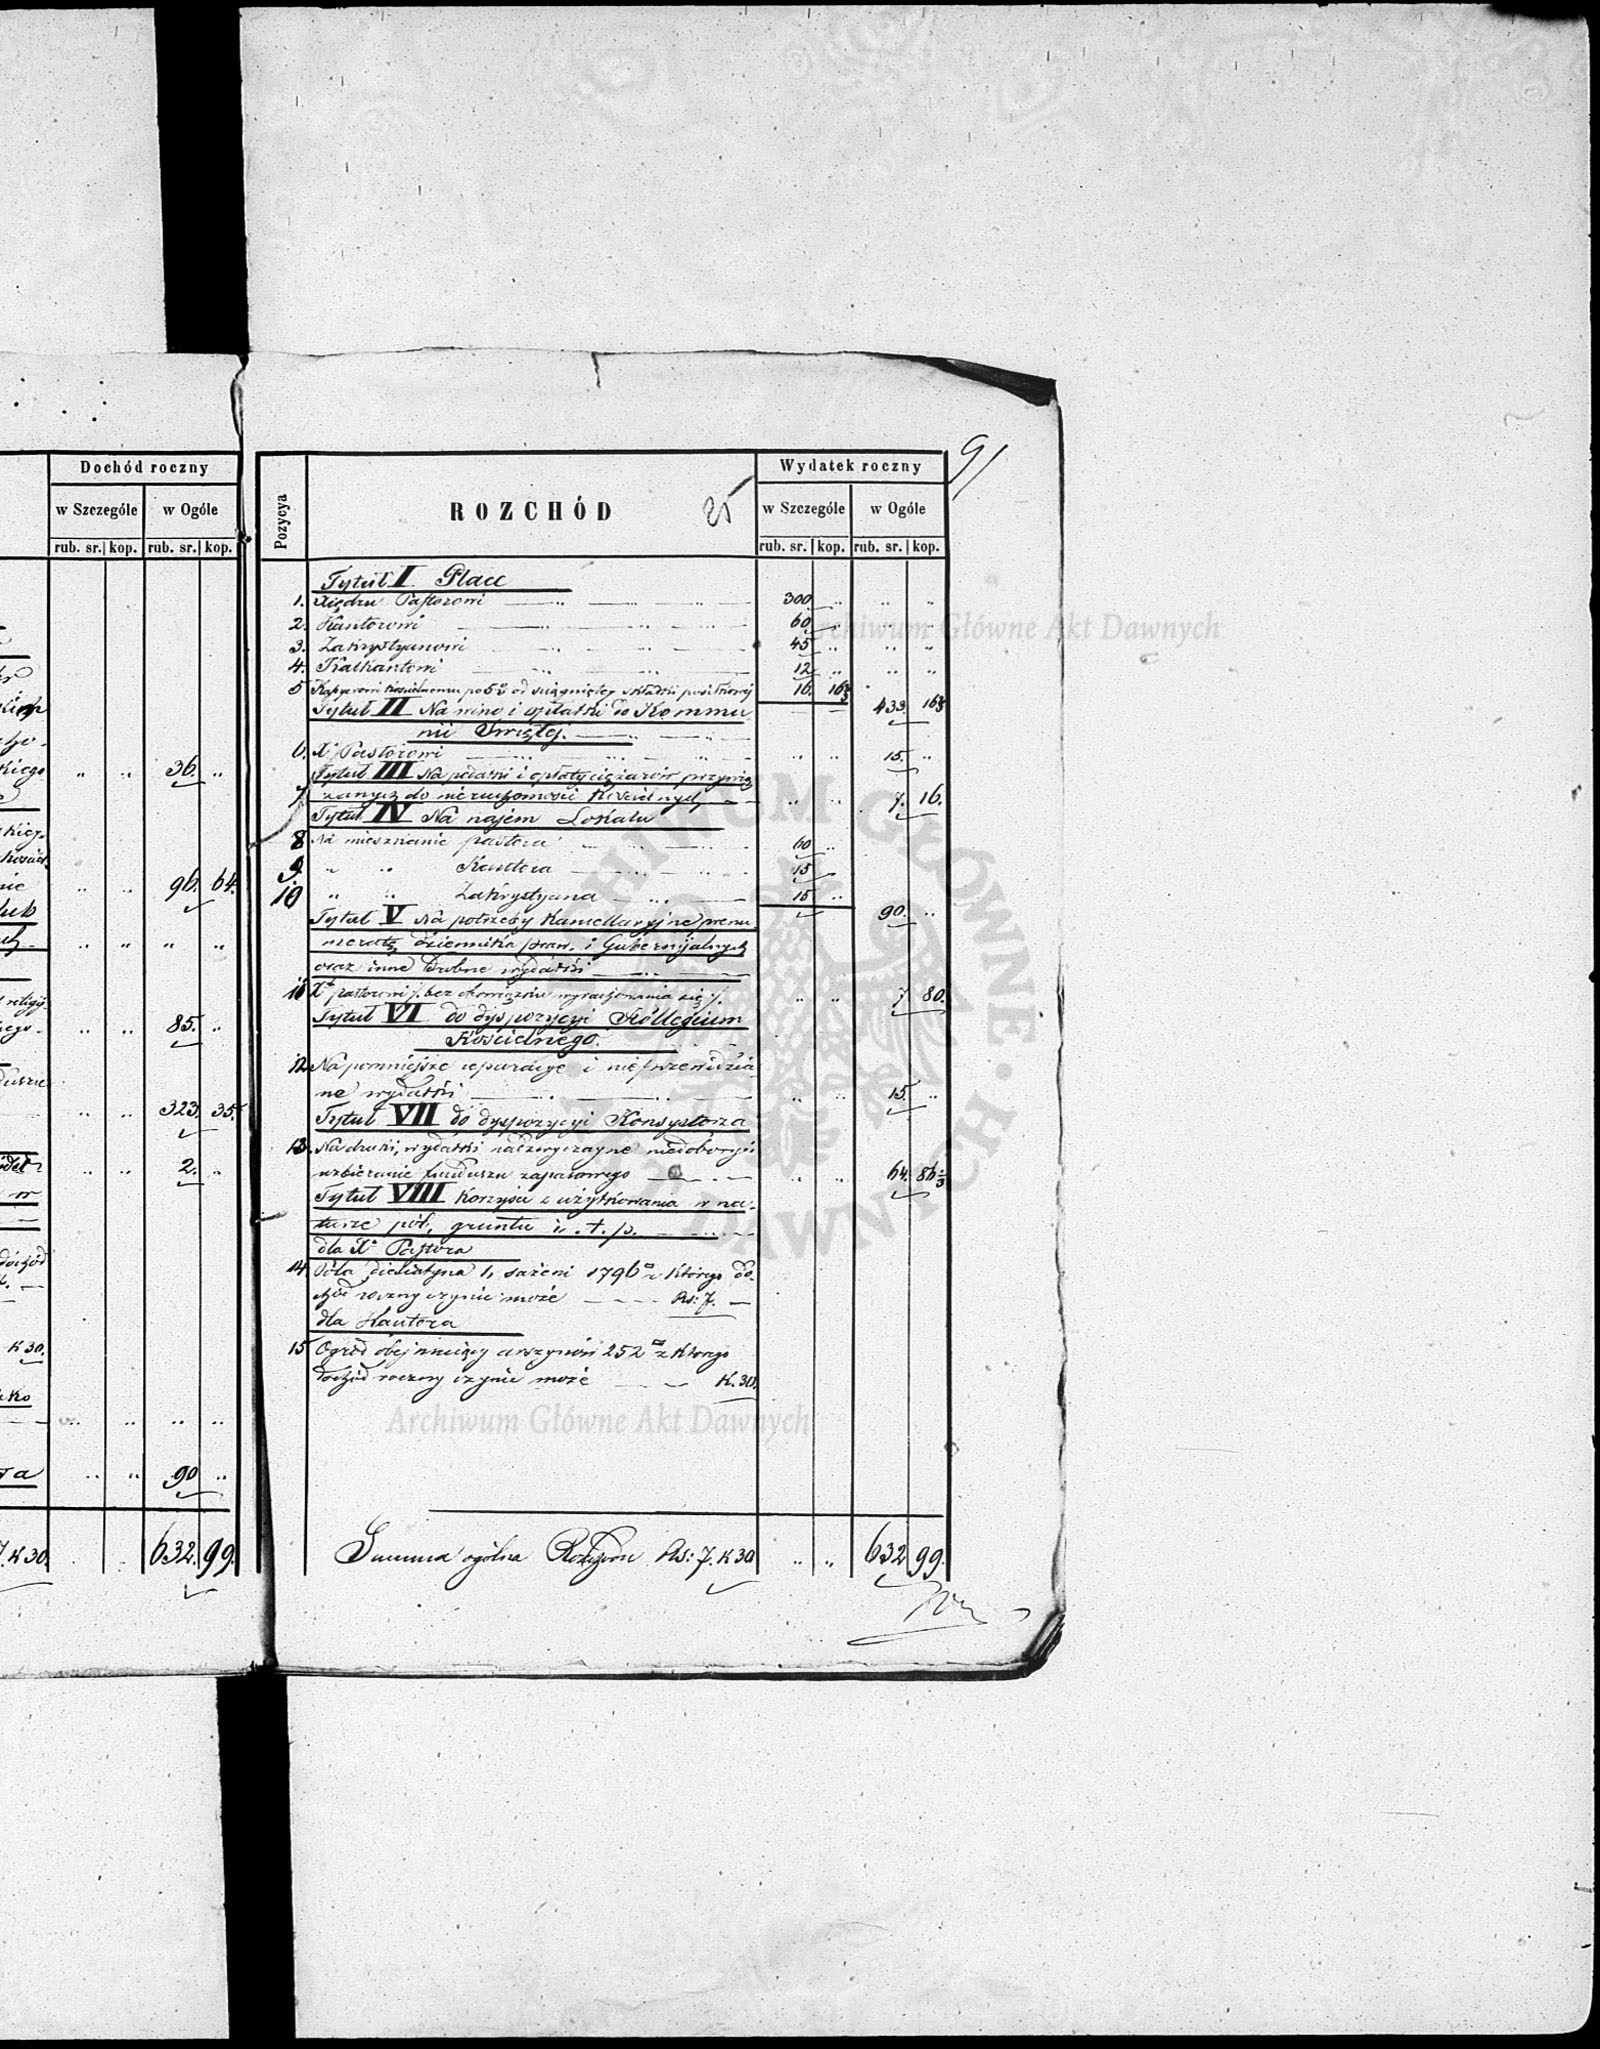 Dochód roczny
w Szczególe w Ogóle
rub. sr. kop. rub. sr. kop.
" " 36. "
" " 96. 64.
" " " "
" " 85. "
" " 323. 35.
" " 2. "
K 30.
" " " "
" " 90 "
7. K 30. " 632. 99.
91
Pozycya ROZCHÓD 25 Wydatek roczny
w Szczególe w Ogóle
rub. sr. kop. rub. sr. kop.
Tytuł I Płace
1. Xiędzu Pastorowi 300 " " "
2. Kantorowi 60 "
3. Zakrystyanowi 45 " " "
4. Kalkantowi 12 " " "
5 Kassyerowi Kościelnemu po 5% od ściągniętej składki posiłkowej 16. 16⅔
Tytuł II Na wino i opłatki do Kommu 433. 16⅔
nii Świętej.
6. X. Pastorowi " " 15. "
Tytuł III Na podatki i opłaty ciężarów przywią
7 zanych do nieruchomości Kościelnych " " 7. 16.
Tytuł IV Na najem Lokalu
8 Na mieszkanie pastora 60 "
9. " " Kantora 15 "
10 " " Zakrystyana 15 "
Tytuł V Na potrzeby Kancellaryjne, prenu 90. "
meratę dziennika praw. i Gubernijalnych
oraz inne drobne wydatki
11 X. pastorowi /. bez obowiązków wyrachowania się ./. " " 7 80.
Tytuł VI do dyspozycyi Kollegium
Kościelnego.
12. Na pomniejsze reparacye i nieprzewidzia
ne wydatki " " 15. "
Tytuł VII do dyspozycyi Konsystorza
13. Na druki, wydatki nadzwyczajne niedobory i
uzbieranie funduszu zapasowego " " 64. 86⅓
Tytuł VIII Korzyści z użytkowania w na-
turze pól, gruntu i. t. p.
dla X. Pastora
14 Pola diesiatyna 1, sażeni 1796 z którego do-
chód roczny czynić może Rs: 7. —
dla Kantora
15 Ogród obejmujący arszynów 252 z którego
dochód roczny czynić może K. 30.
Summa ogólna Rozchodu Rs: 7. K 30 " " 632 99.
Archiwum Główne Akt Dawnych
Archiwum Główne Akt Dawnych
ARCHIWUM GŁÓWNE AKT DAWNYCH